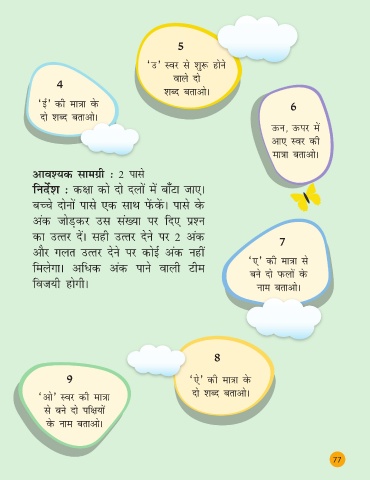 4
'ई' की मात्रा के
दो शब्द बताओ।
5
'उ' स्वर से शुरू होने
वाले दो
शब्द बताओ।
6
ऊन, ऊपर में
आए स्वर की
मात्रा बताओ।
आवश्यक सामग्री : 2 पासे
निर्देश : कक्षा को दो दलों में बाँटा जाए।
बच्चे दोनों पासे एक साथ फेंकें। पासे के
अंक जोड़कर उस संख्या पर दिए प्रश्न
का उत्तर दें। सही उत्तर देने पर 2 अंक
और गलत उत्तर देने पर कोई अंक नहीं
मिलेगा। अधिक अंक पाने वाली टीम
विजयी होगी।
7
'ए' की मात्रा से
बने दो फलों के
नाम बताओ।
8
'ऐ' की मात्रा के
दो शब्द बताओ।
9
'ओ' स्वर की मात्रा
से बने दो पक्षियों
के नाम बताओ।
77